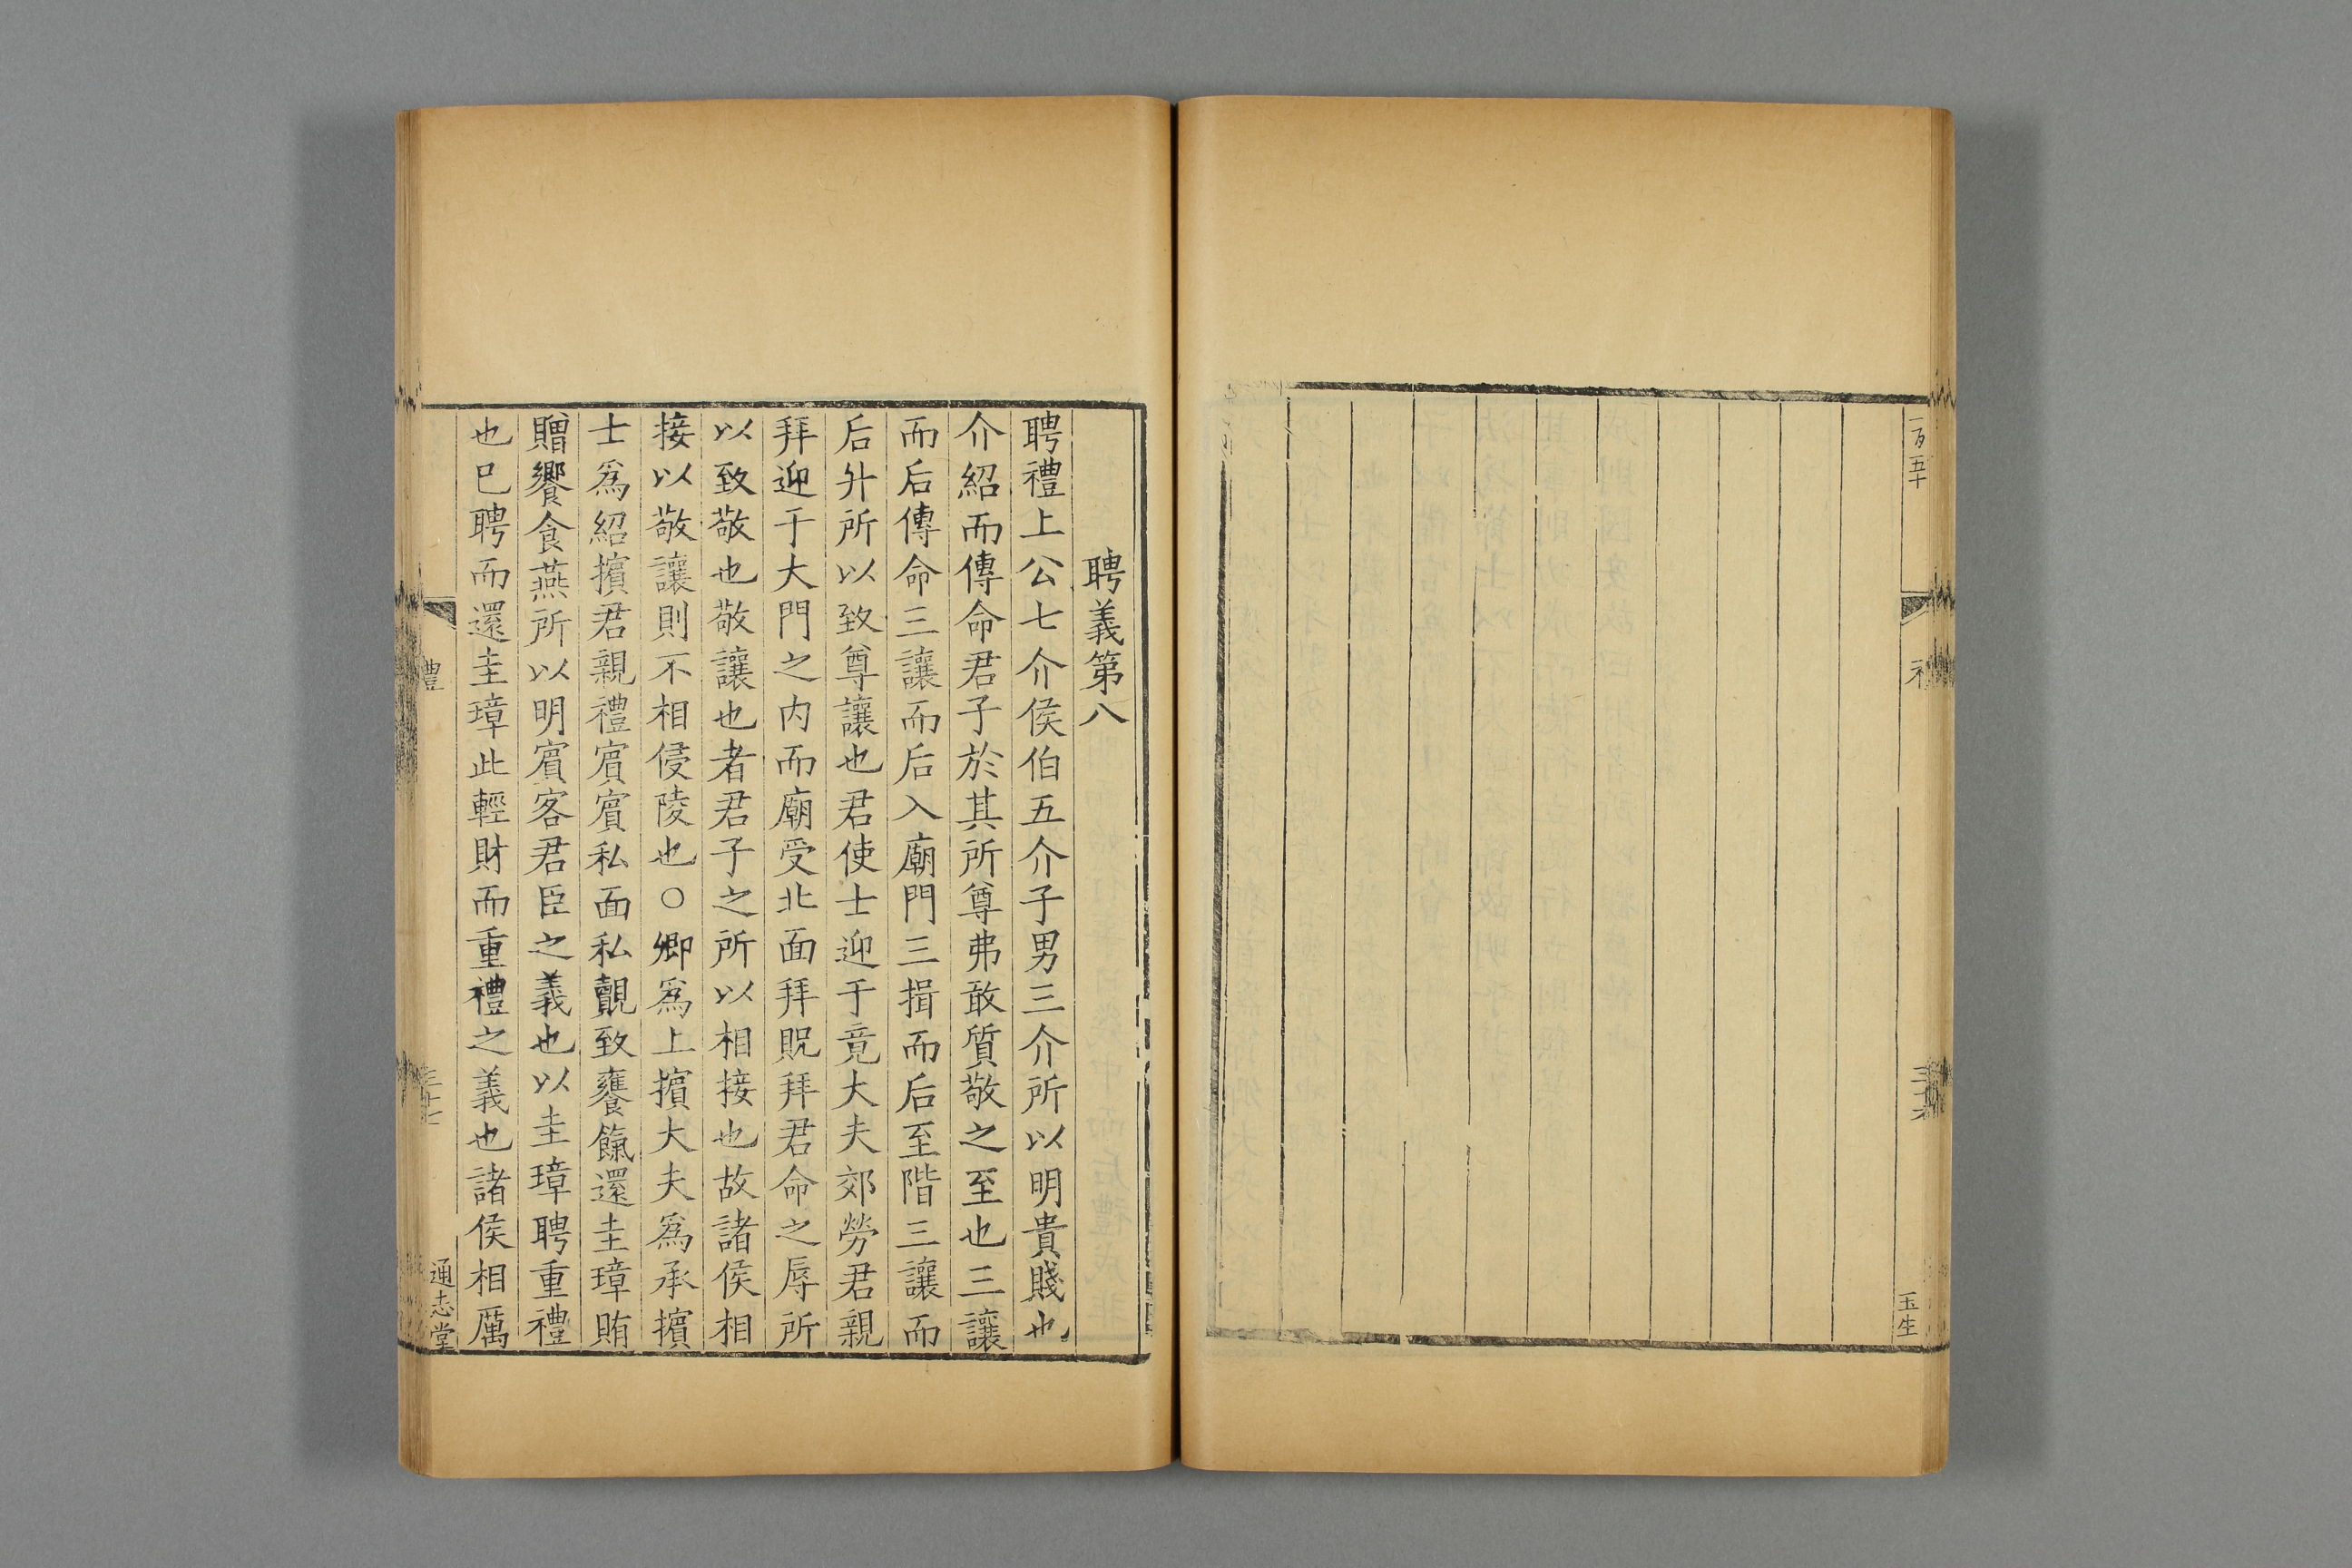 一百五十
三十六
玉生
聘義第八
聘禮上公七介侯伯五介子男三介所以明貴賤也
介紹而傳命君子於其所尊弗敢質敬之至也三讓
而后傳命三讓而后入廟門三揖而后至階三讓而
后升所以致尊讓也君使士迎于竟大夫郊勞君親
拜迎于大門之内而廟受北面拜貺拜君命之辱所
以致敬也敬讓也者君子之所以相接也故諸侯相
接以敬讓則不相侵陵也○卿爲上擯大夫爲承擯
士爲紹擯君親禮賔賔私面私覿致饔餼還圭璋賄
贈饗食燕所以明賔客君臣之義也以圭璋聘重禮
也已聘而還圭璋此輕財而重禮之義也諸侯相厲
禮
三十七
通志堂